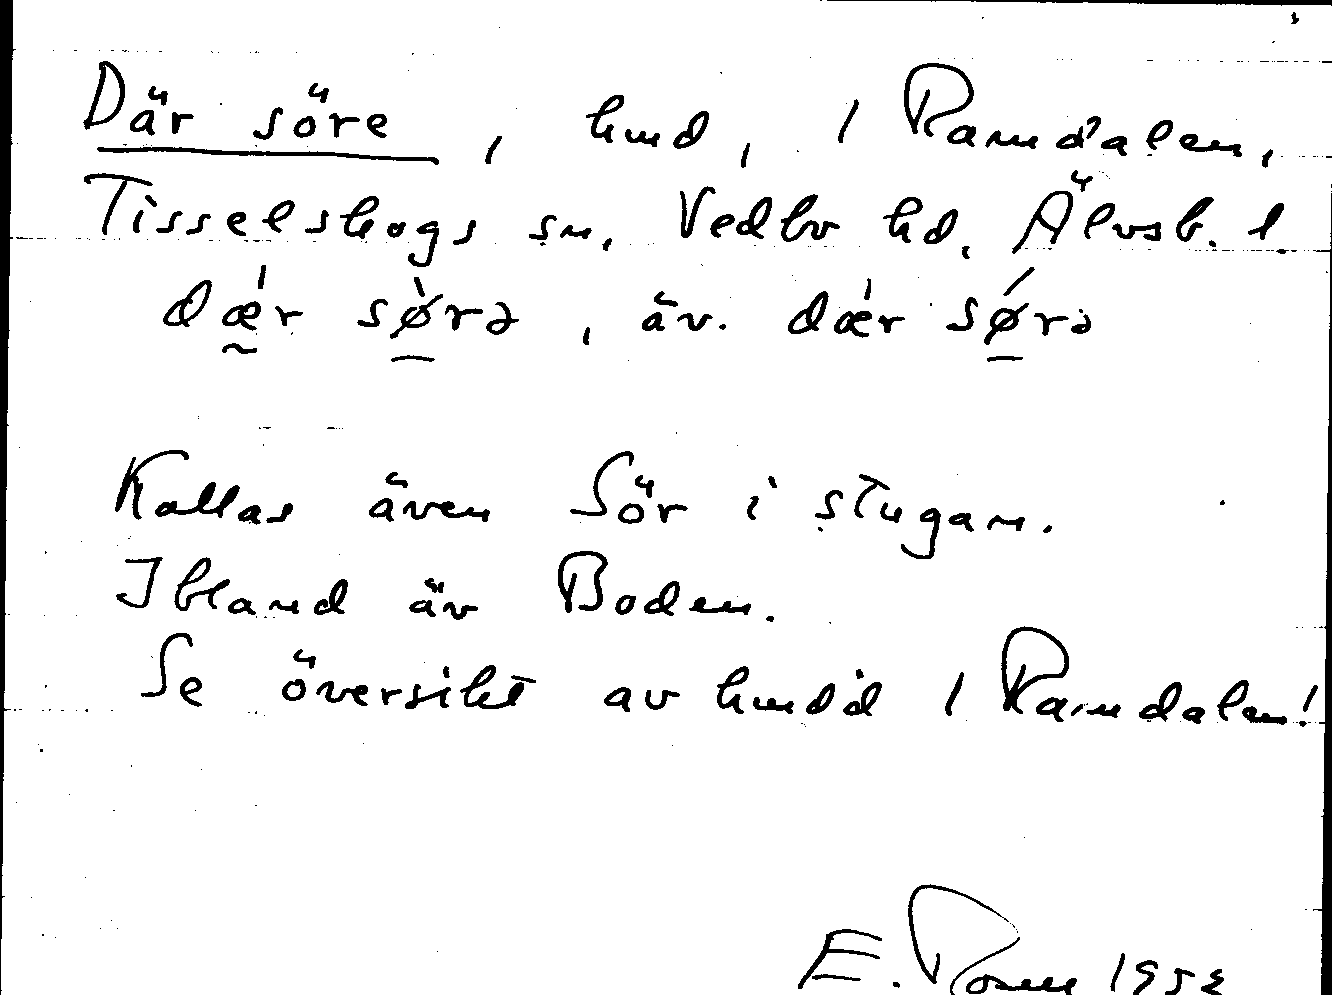 Där söre, hmd, 1 Ramdalen,
Tisselskogs sn, Vedbo hd, Älvsb. l.
dǽr sø̀rə, äv. dǽr sǿrə
Kallas även Sör i stugan.
Ibland äv Boden.
Se översikt av hmdd 1 Ramdalen!
E. 1952